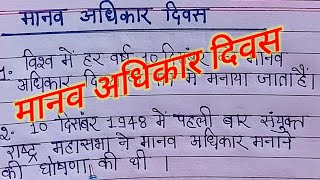 मानव अधिकार दिवस
1. विश्व में हर वर्ष 10 दिसंबर मानव
अधिकार में मनाया जाता है।
मानव अधिकार दिवस
2. 10 दिसंबर 1948 में पहली बार संयुक्त
राष्ट्र महासभा ने मानव अधिकार मनाने
की घोषणा की थी ।